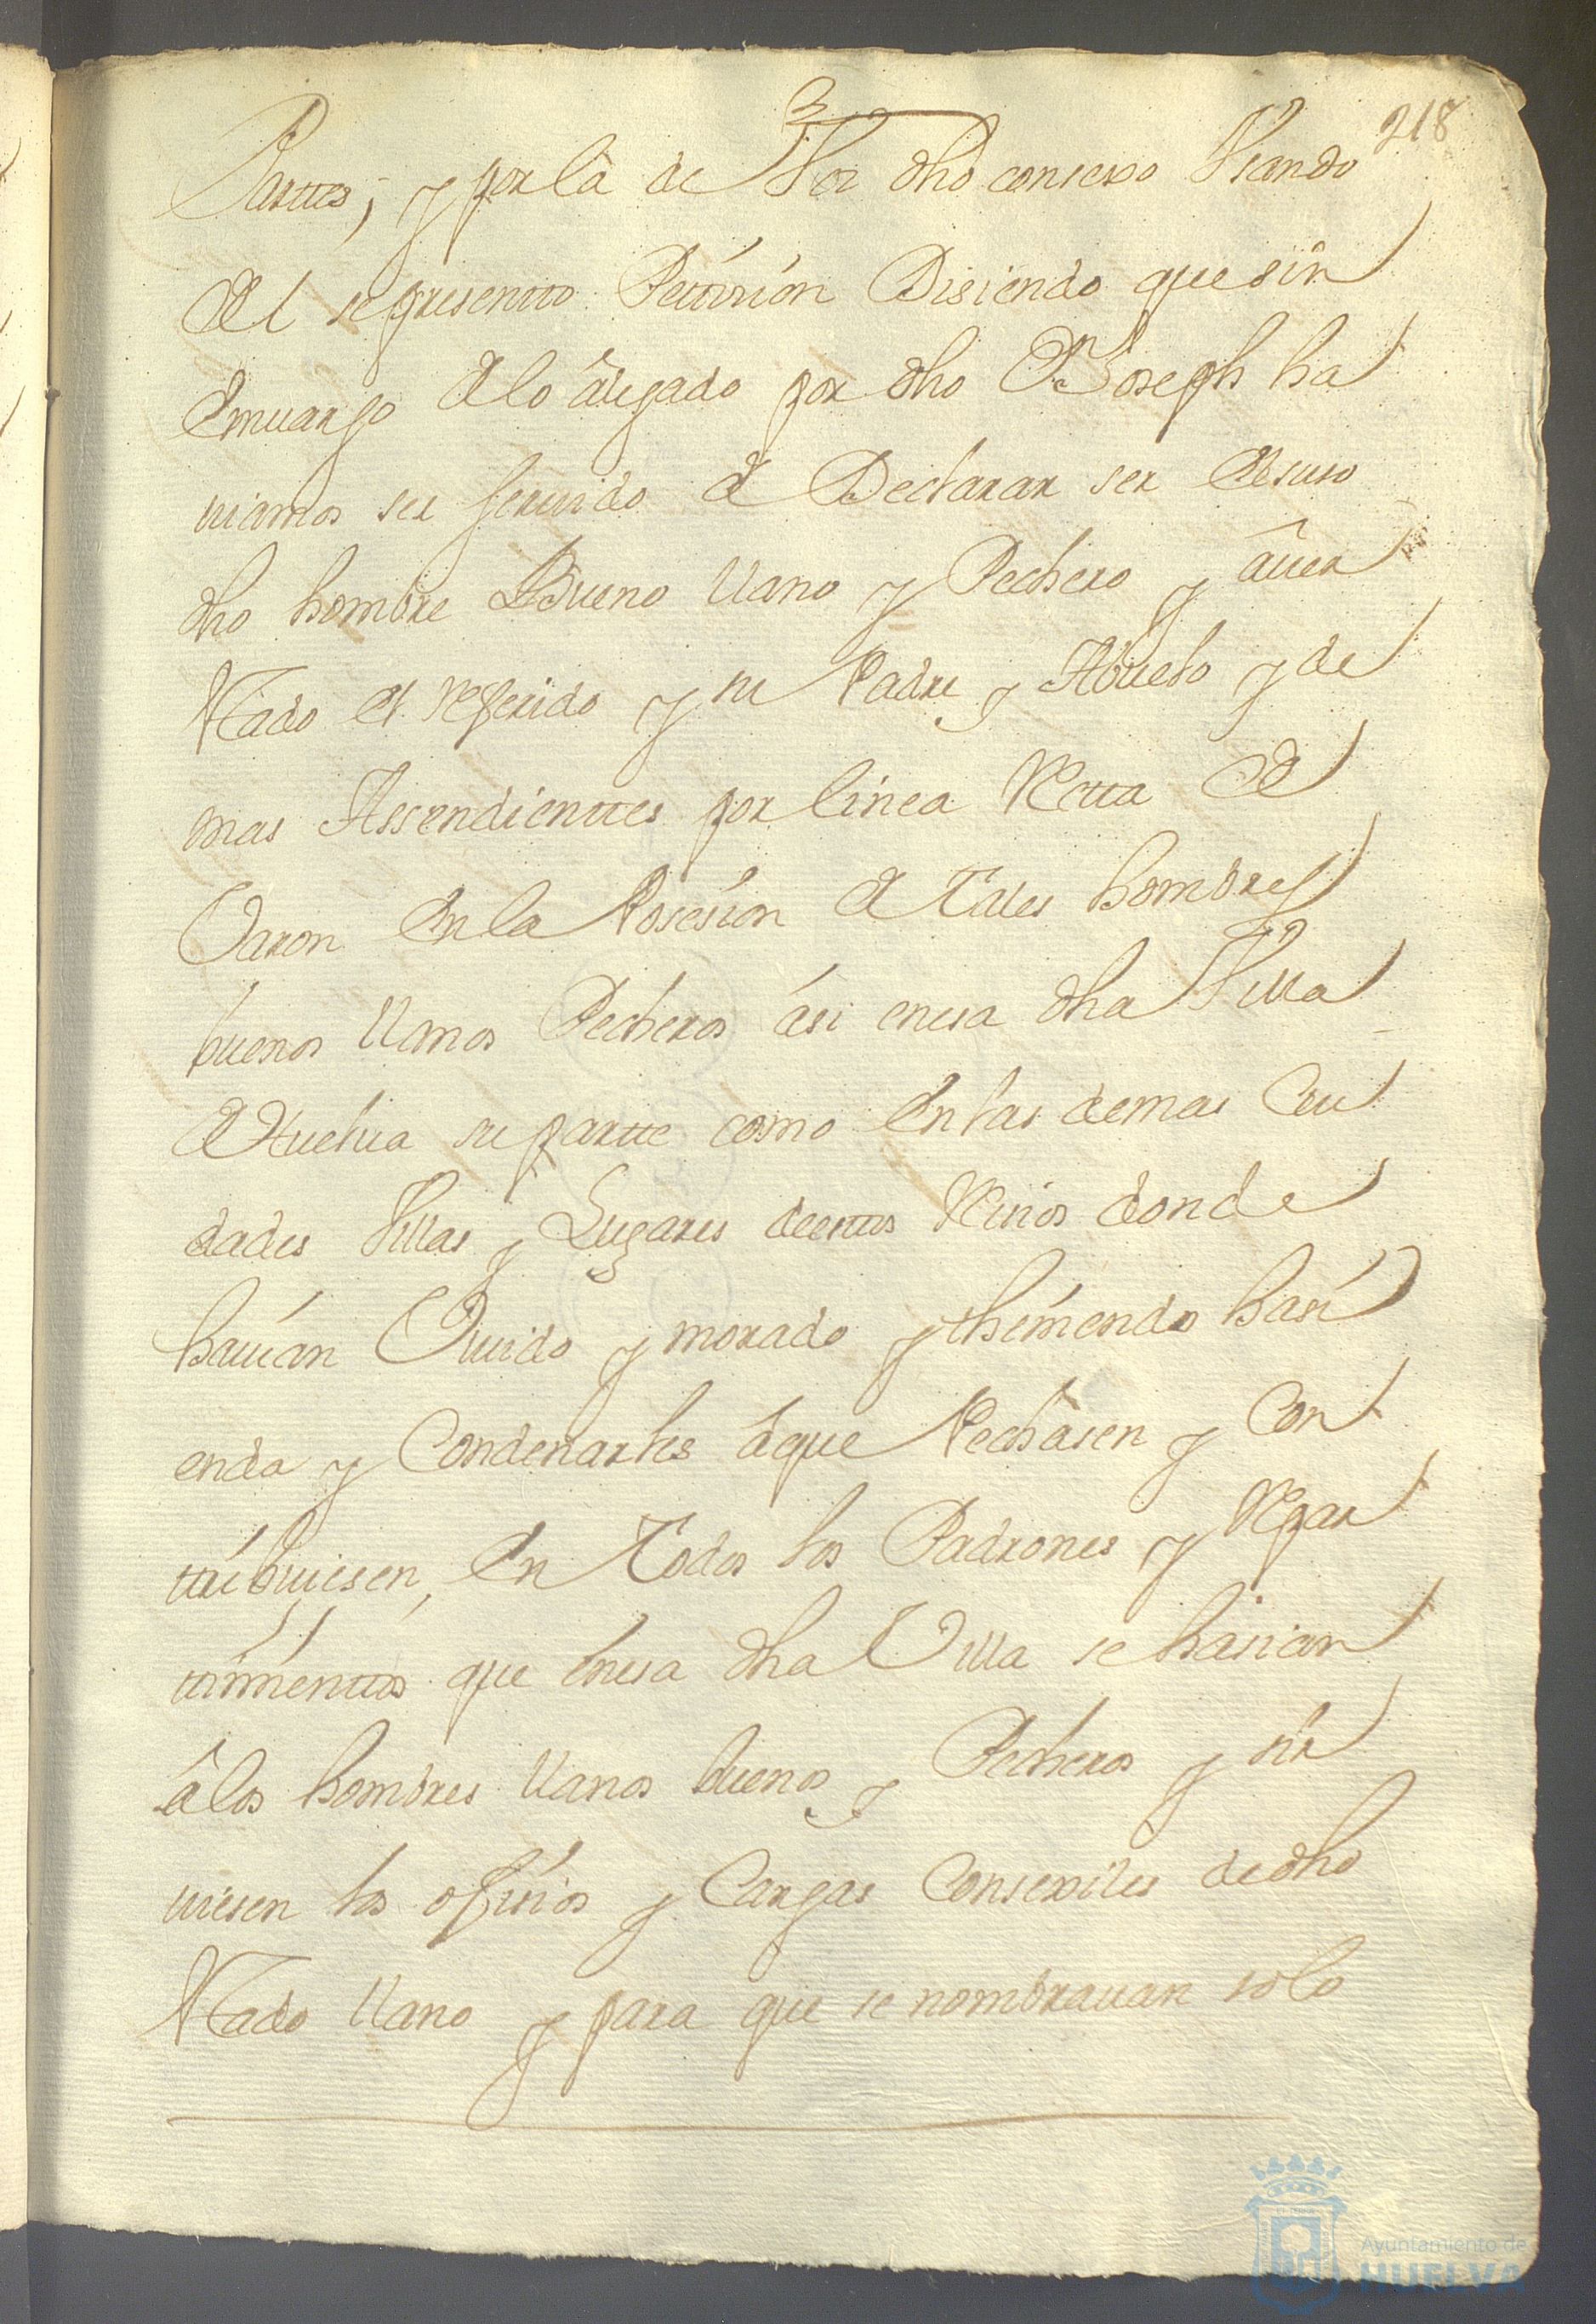 218
Parttes, y por la de Vos dho consexo Vsando
del se presentto Pettision Disiendo que sin
Emuargo de lo alegado por dho Dn Joseph ha
uiamos ser seruido de Declarar ser el suso
dho hombre Bueno llano y Pechero y auer
stado el referido y su Padre y Abuelo y de
mas Assendienttes por linea Retta de
Varon en la Posesion de tales hombres
buenos llanos Pecheros asi en esa dha Villa
de Huelva su partte como en las demas Ciu
dades Villas y Lugares de esttos Reinos donde
hauian Viuido y morado y theniendo hasi
enda y Condenarles a que Pechasen y Con
ttribuiesen, en todos los Padrones y Repar
timienttos que en esa dha Villa se hasian
a los hombres llanos buenos y Pecheros y sir
uiesen los ofisios y Cargas Consexiles de dho
stado llano y para que se nombrauan solo
Ayuntamiento de
HUELVA